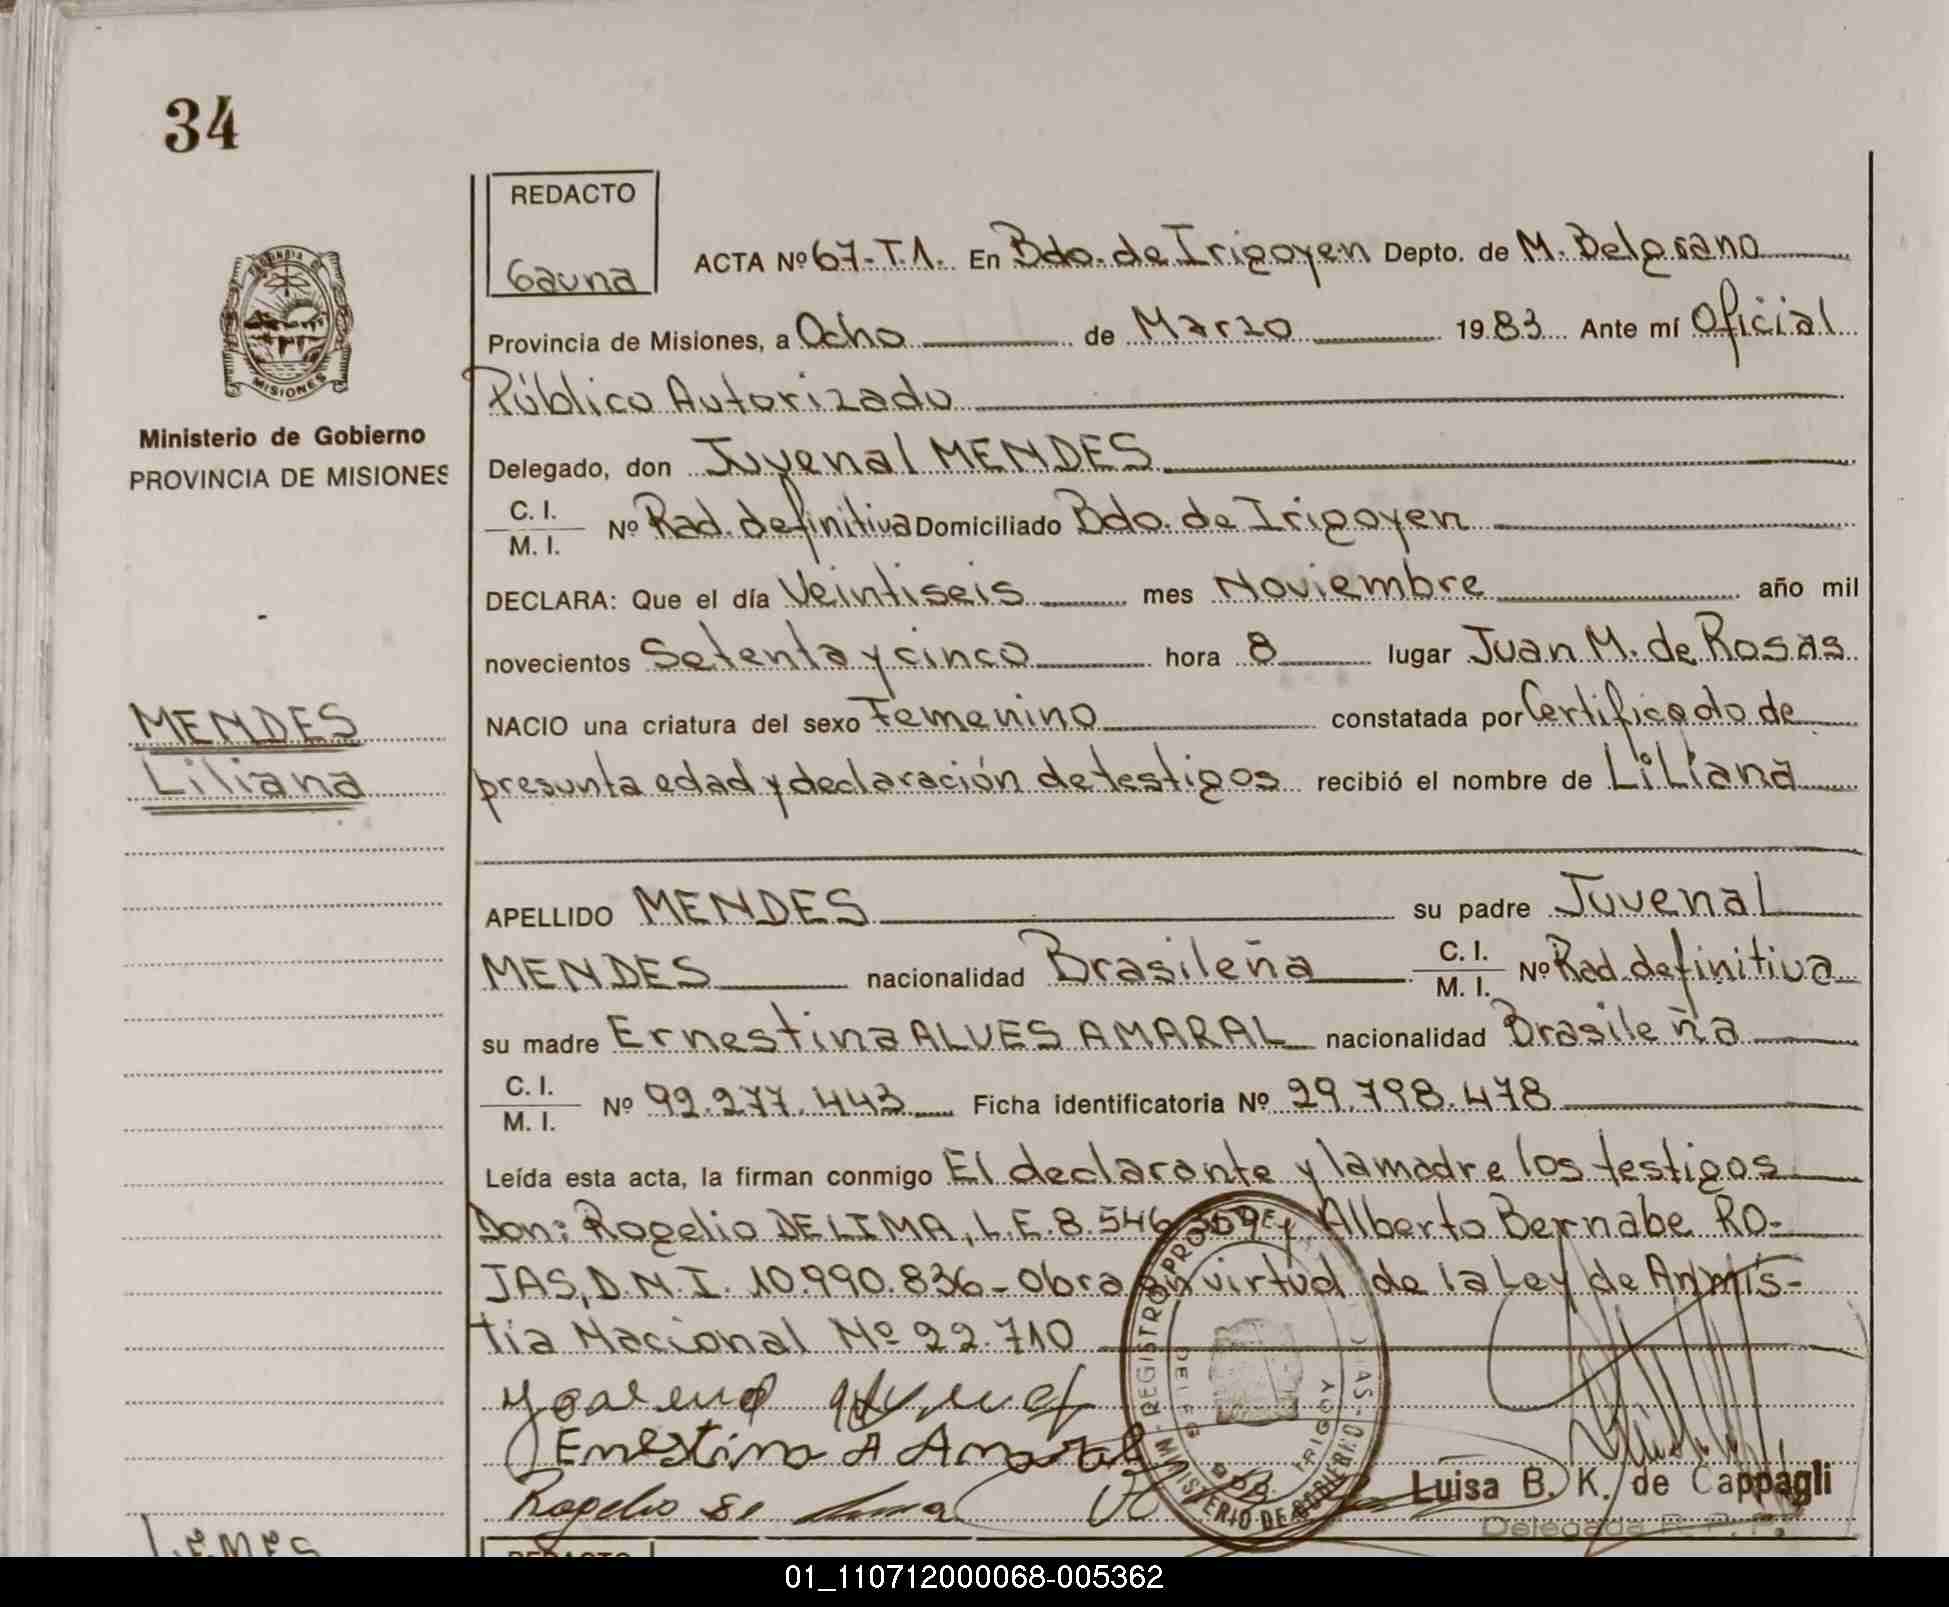 34
REDACTO
Gauna
ACTA Nº 67-T.1. En Bdo. de Irigoyen Depto. de M. Belgrano
Provincia de Misiones, a Ocho de Marzo 1983 Ante mí Oficial
Público Autorizado
Delegado, don Juvenal MENDES
C. I.
M. I. Nº Rad. definitiva Domiciliado Bdo. de Irigoyen
DECLARA: Que el día Veintiseis mes Noviembre año mil
novecientos Setenta y cinco hora 8 lugar Juan M. de Rosas
NACIO una criatura del sexo Femenino constatada por Certificado de
presunta edad y declaración de testigos recibió el nombre de Liliana
APELLIDO MENDES su padre Juvenal
MENDES nacionalidad Brasileña C. I. M. I. Nº Rad. definitiva
su madre Ernestina ALVES AMARAL nacionalidad Brasileña
C. I.
M. I. Nº 92.277.443 Ficha identificatoria Nº 29.798.478
Leída esta acta, la firman conmigo El declarante y la madre los testigos
Don: Rogelio DE LIMA, L.E. 8.546.369 y Alberto Bernabe RO-
JAS, D.N.I. 10.990.836 - Obra en virtud de la Ley de Anmis-
tia Nacional Nº 22.710
Ernestina A Amaral
Rogelio de Lima
Luisa B. K. de Cappagli
Delegada R. P. P.
MISIONES
Ministerio de Gobierno
PROVINCIA DE MISIONES
MENDES
Liliana
LEMES
REDACTO
01_110712000068-005362